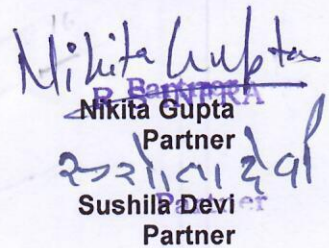 Nikita Gupta
Partner
R S INFRA
Nikita Gupta
Partner
सुशीला देवी
Partner
Sushila Devi
Partner